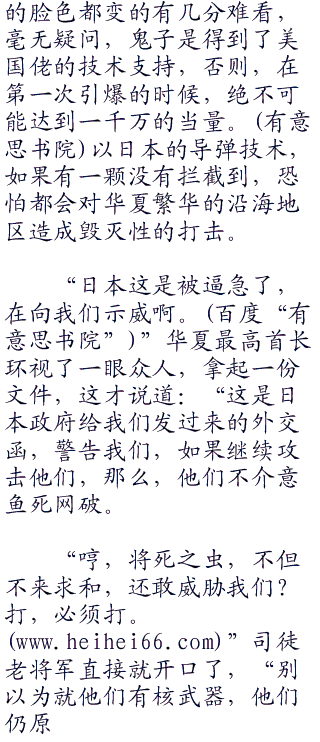 的脸色都变的有几分难看，
毫无疑问，鬼子是得到了美
国佬的技术支持，否则，在
第一次引爆的时候，绝不可
能达到一千万的当量。(有意
思书院)以日本的导弹技术，
如果有一颗没有拦截到，恐
怕都会对华夏繁华的沿海地
区造成毁灭性的打击。
“日本这是被逼急了，
在向我们示威啊。(百度“有
意思书院”)”华夏最高首长
环视了一眼众人，拿起一份
文件，这才说道：“这是日
本政府给我们发过来的外交
函，警告我们，如果继续攻
击他们，那么，他们不介意
鱼死网破。
“哼，将死之虫，不但
不来求和，还敢威胁我们？
打，必须打。
(www.heihei66.com)”司徒
老将军直接就开口了，“别
以为就他们有核武器，他们
仍原